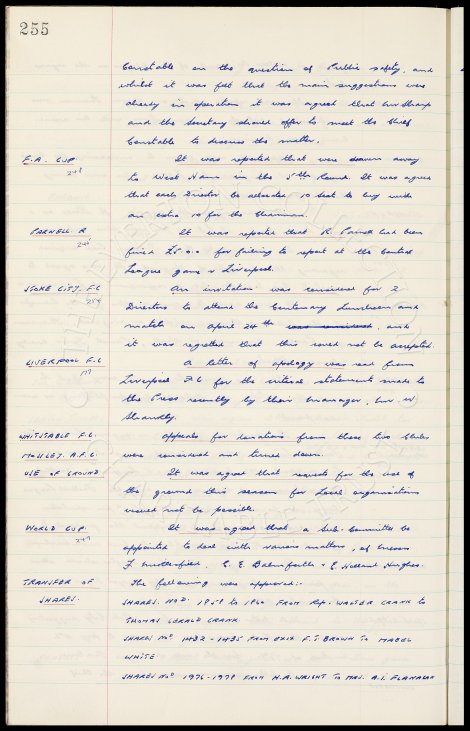 255
Constable on the question of Public safety, and
whilst it was felt that the main suggestions were
already in operation it was agreed that Mr Sharp
and the Secretary should offer to meet the Chief
Constable to discuss the matter.
F.A. CUP It was reported that were drawn away
248 to West Ham in the 5th Round. It was agreed
that each Director be allocated 10 seats to buy with
an extra 10 for the Chairman.
PARNELL R It was reported that R. Parnell had been
fined £5.0.0 for failing to report at the Central
League game v Liverpool.
STOKE CITY. F.C An invitation was received for 2
254 Directors to attend the Centenary Luncheon and
match on April 24th was received, and
it was regretted that this could not be accepted.
LIVERPOOL F.C A letter of apology was read from
Liverpool FC for the critical statement made to
the Press recently by their manager, Mr. W
Shankly.
WHITSTABLE F.C. Appeals for donations from these two Clubs
MOSSLEY. A.F.C. were received and turned down.
USE OF GROUND It was agreed that requests for the use of
the ground this season for Local organisations
would not be possible.
WORLD CUP It was agreed that a Sub-Committee be
249 appointed to deal with various matters, of Messrs
F Micklesfield, C. E Balmforth & E Holland Hughes.
TRANSFER OF The following was approved:-
SHARES. SHARES. NOS. 1858 to 1860 FROM REP. WALTER CRANK to
THOMAS GERALD CRANK.
SHARES NOS 1432 - 1435 FROM EXIX F.T BROWN TO MABEL
WHITE
SHARES NOS 1976 - 1978 FROM H.A. WRIGHT TO MRS. A.I. FLANAGAN